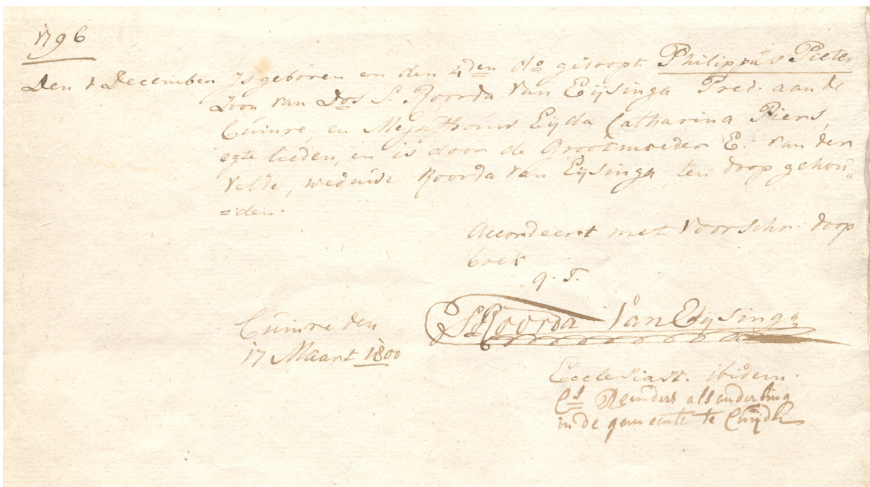 1796
Den 1 December Is geboren en den 4den do gedoopt Philippus Pieter
Zoon van Dos S. Roorda Van Eijsinga Pred. aan de
Cuinre, en Mejuffrouw Eijda Catharina Piers,
egte lieden, en is door de Grootmoeder E. van der
Velde, weduwe Roorda van Eijsinga, ten doop gehou„
=den.
Accordeert met voorschr. doop
boek
q. T.
S Roorda Van Eijsinga
Cuinre den
17 Maart 1800
Ecclesiast. ibidem.
Reinders als ouderling
in de gemeente te